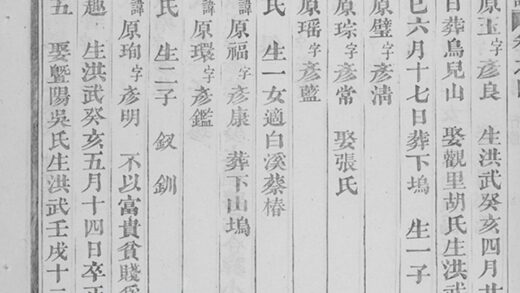 原玉字彥良　生洪武癸亥四月廿
日葬鳥兒山　娶觀里胡氏生洪武
巳六月十七日葬下塢　生一子
原璧字彥淸
原琮字彥常　娶張氏
原瑶字彥藍
氏　生一女適白溪蔡椿
諱原福字彥康　葬下山塢
諱原環字彥鑑
氏　生二子　釵釧
諱原珣字彥明　不以富貴貧賤
趣　生洪武癸亥五月十四日卒正
五　娶曁陽吳氏生洪武壬戌十二